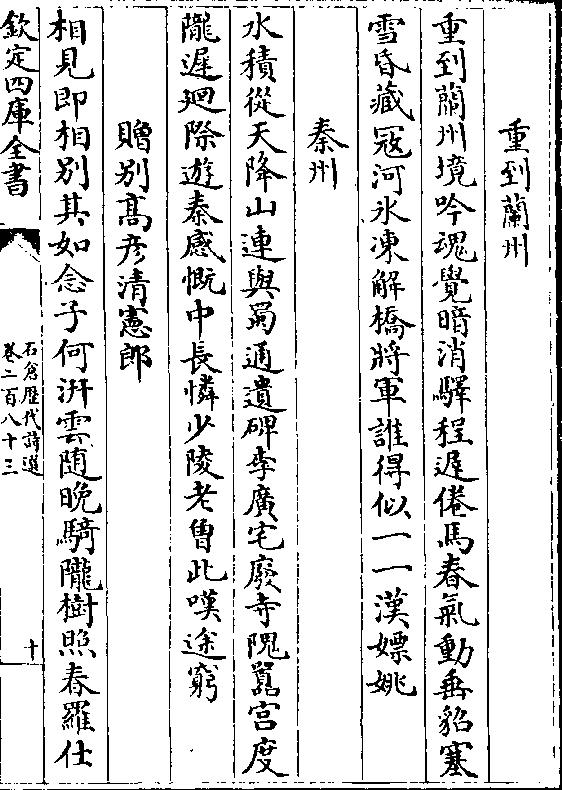 重到蘭州
重到蘭州境吟魂覺暗消驛程遲倦馬春氣動垂貂塞
雪昏藏冦河氷凍解橋將軍誰得似一一漢嫖姚
秦州
水積從天降山連與蜀通遺碑李廣宅廢寺隗囂宮度
隴遲廻際遊秦感慨中長憐少陵老曽此嘆途窮
贈别髙彦清憲郎
相見即相别其如念子何汧雲随晚騎隴樹照春羅仕
欽定四庫全書
石倉歴代詩選
卷二百八十三
十